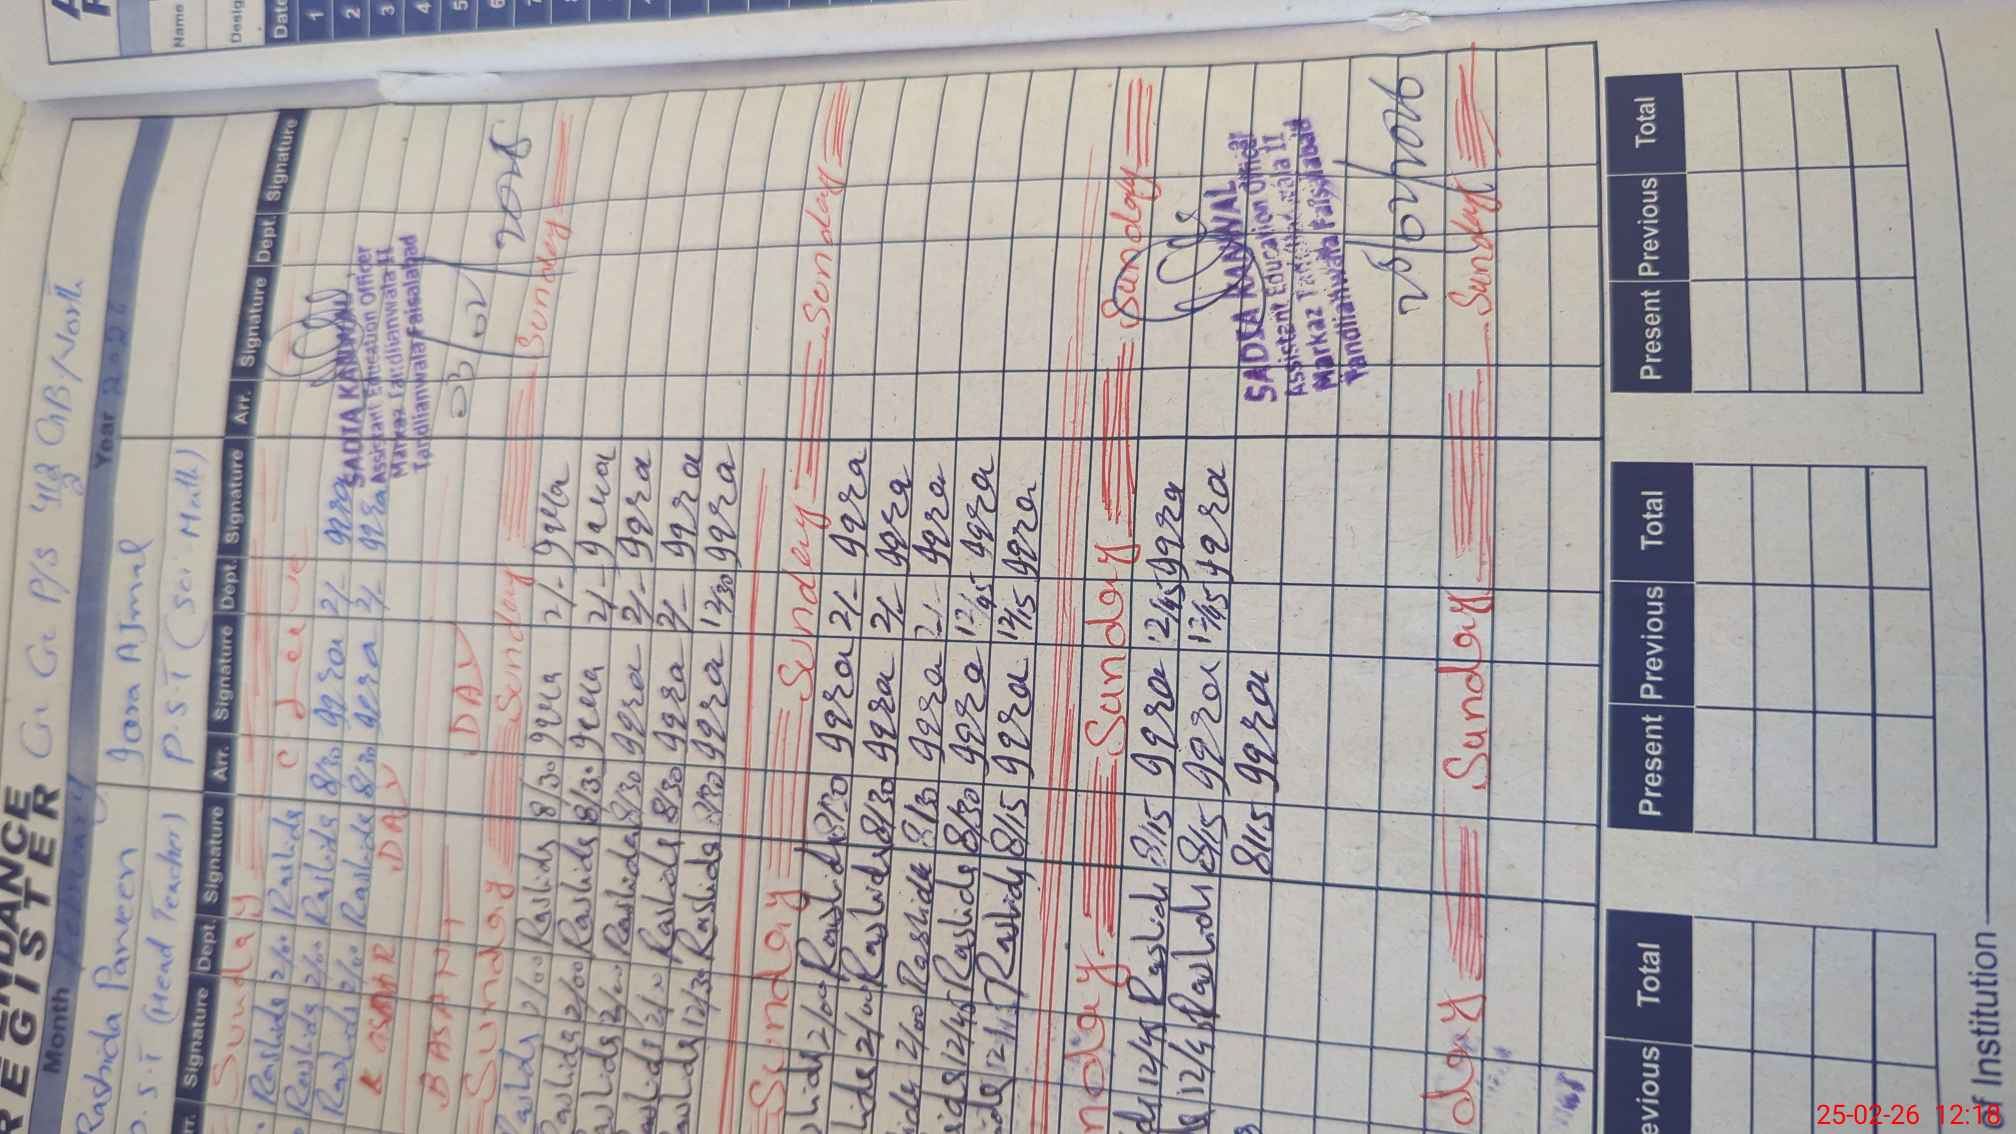 ATTENDANCE
REGISTER
G G P/S 418 GB/North
Month February Year 2026
Rashida Parveen
Iqra Ajmal
P.S.T (Head Teacher)
P.S.T (Sci Math)
Arr. Signature Dept. Signature Arr. Signature Dept. Signature Arr. Signature Dept. Signature
Sunday
Rashida 2/00 Rashida C Leave
Rashida 2/00 Rashida 8/30 Iqra 2/- Iqra
Rashida 2/00 Rashida 8/30 Iqra 2/- Iqra
SADIA KANWAL
Assistant Education Officer
Markaz Tandlianwala II
Tandlianwala Faisalabad
03/02/2026
DAY
BASANT DAY
Sunday Sunday Sunday
Rashida 2/00 Rashida 8/30 Iqra 2/- Iqra
Rashida 2/00 Rashida 8/30 Iqra 2/- Iqra
Rashida 2/00 Rashida 8/30 Iqra 2/- Iqra
Rashida 2/00 Rashida 8/30 Iqra 2/- Iqra
Rashida 12/30 Rashida 8/30 Iqra 12/30 Iqra
Sunday Sunday Sunday Sunday
2/00 Rashida 8/30 Iqra 2/- Iqra
2/00 Rashida 8/30 Iqra 2/- Iqra
2/00 Rashida 8/30 Iqra 2/- Iqra
12/45 Rashida 8/30 Iqra 12/45 Iqra
12/15 Rashida 8/15 Iqra 12/15 Iqra
Sunday Sunday Sunday
12/45 Rashida 8/15 Iqra 12/45 Iqra
12/45 Rashida 8/15 Iqra 12/45 Iqra
8/15 Iqra
SADIA KANWAL
Assistant Education Officer
Markaz Tandlianwala II
Tandlianwala Faisalabad
25/02/2026
Sunday Sunday
Previous Total Present Previous Total Present Previous Total
of Institution
Name
Desig
Date
1
2
3
4
5
6
7
25-02-26 12:18